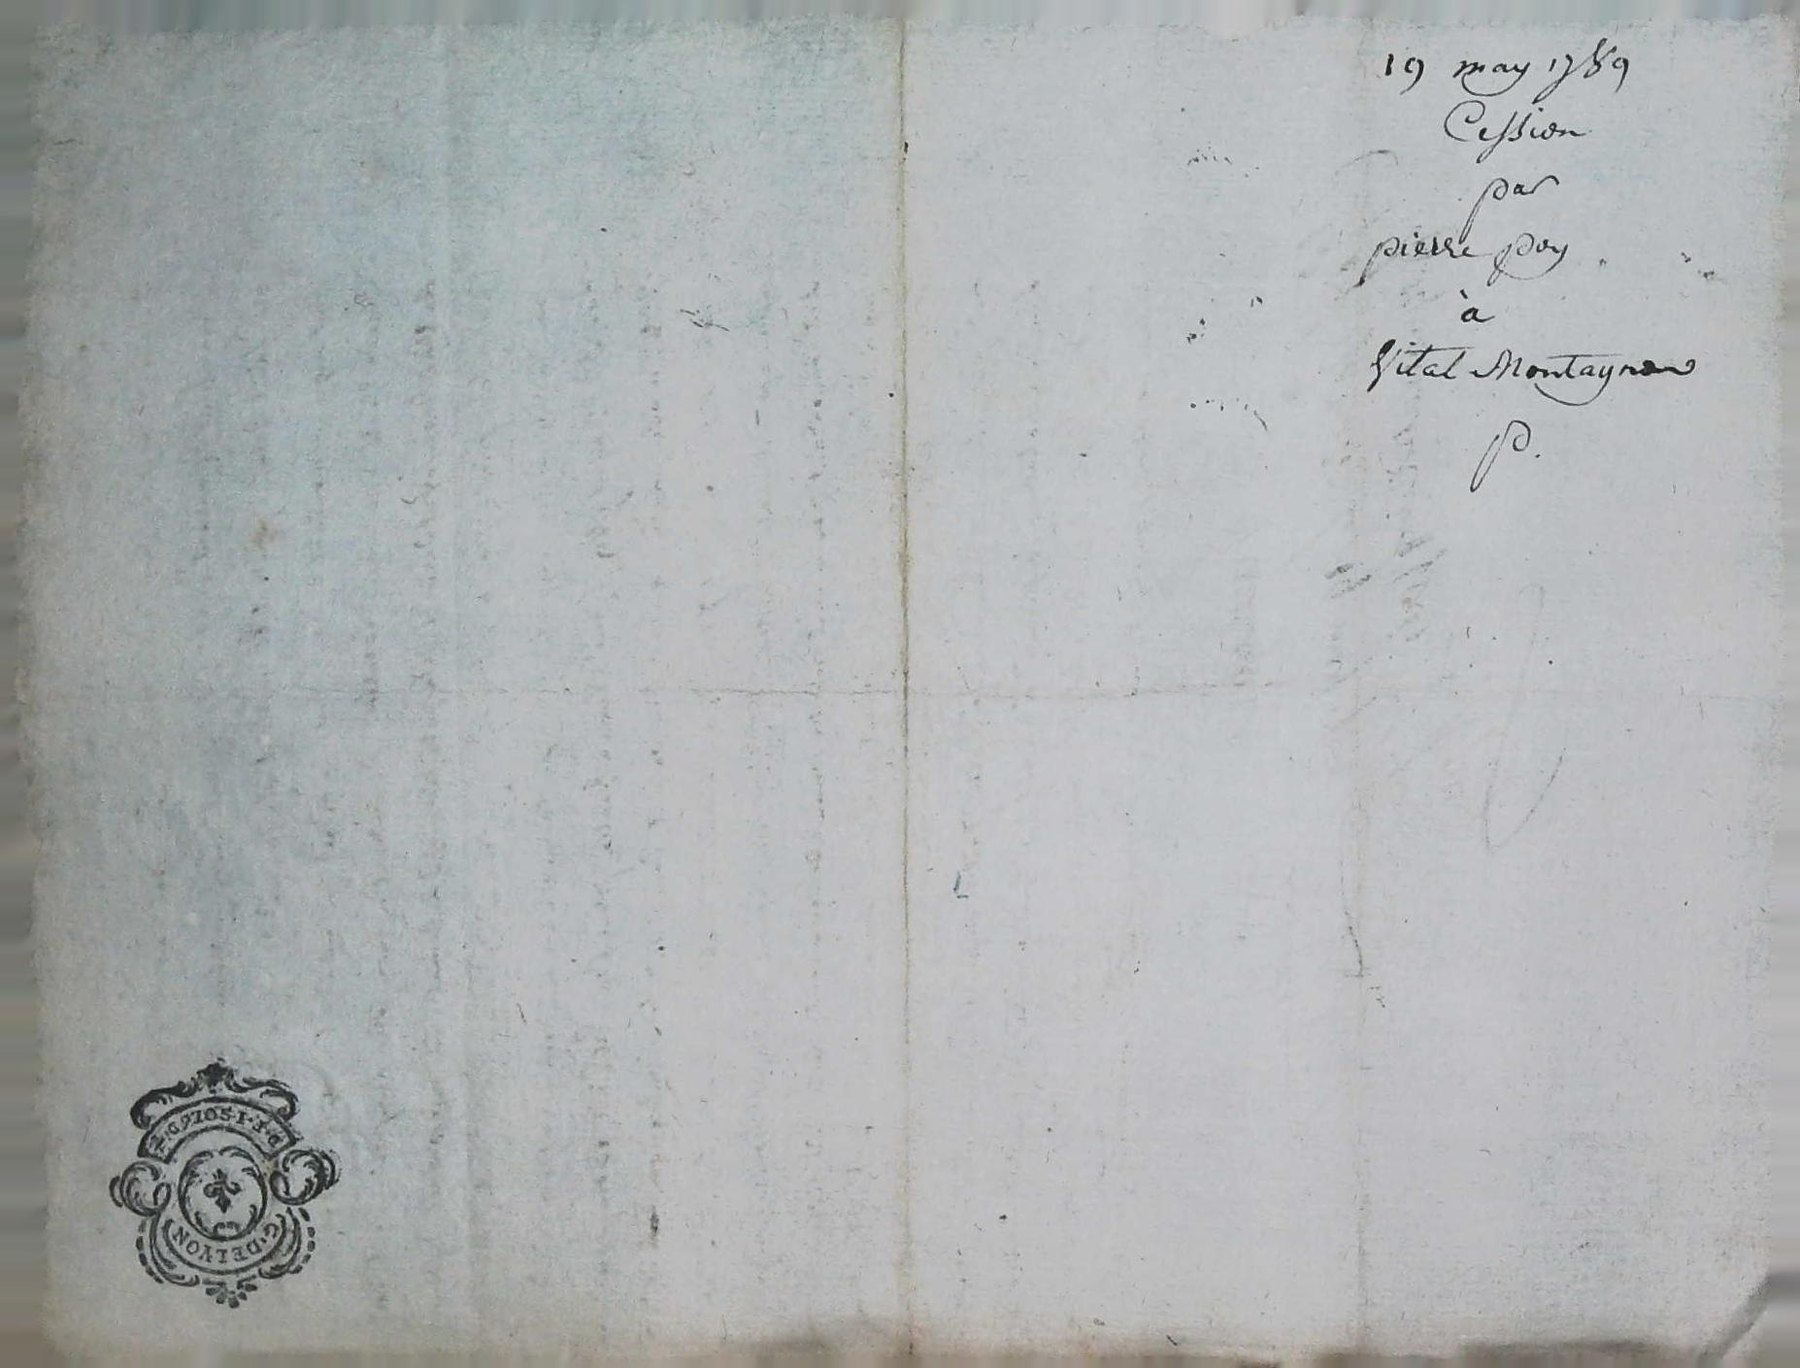 19 may 1789
Cession
par
pierre poy
à
Vital Montagnon
p.
G. DE LYON